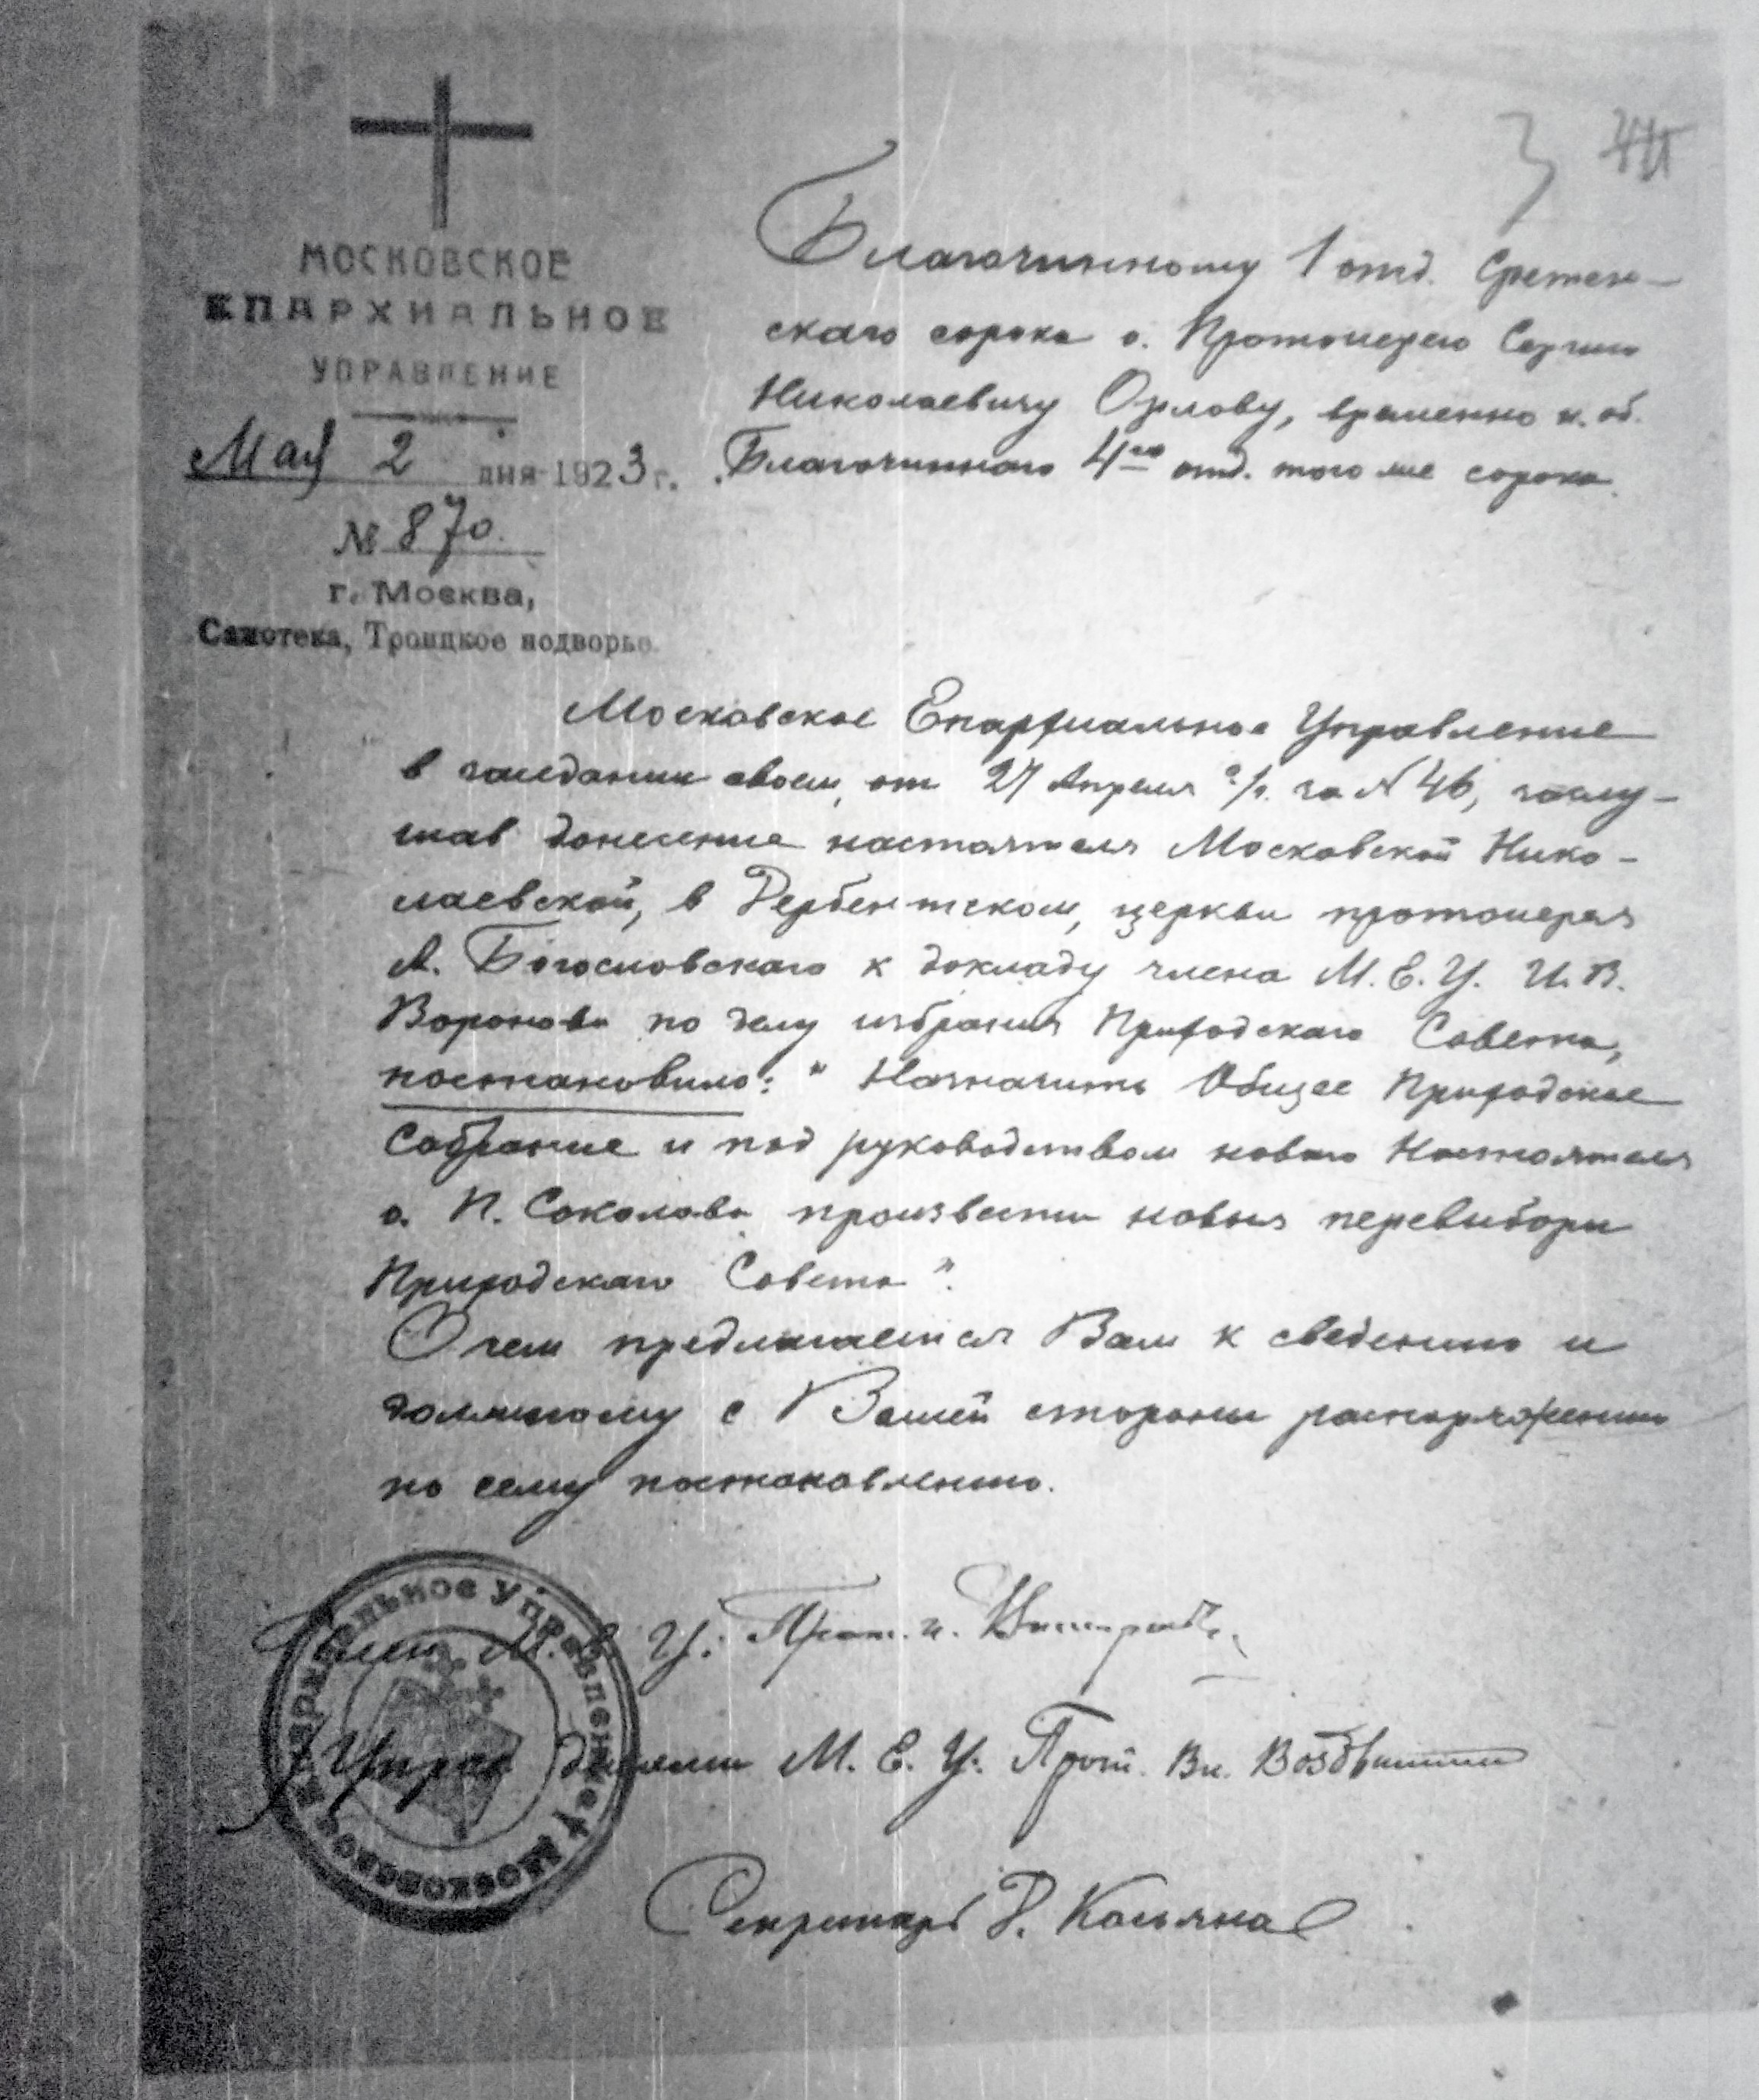 МОСКОВСКОЕ
ЕПАРХИАЛЬНОЕ
УПРАВЛЕНИЕ
Мая 2 дня 1923 г.
№ 870.
г. Москва,
Самотека, Троицкое подворье.
3
Благочинному 1 отд. Сретен-
скаго сорока о. Протоиерею Сергию
Николаевичу Орлову, временно и. об.
Благочиннаго 4го отд. того же сорока.
Московское Епархиальное Управление
в заседании своем, от 27 Апреля с/г. за № 46, заслу-
шав донесение настоятеля Московской Нико-
лаевской, в Дербентском, церкви протоиерея
А. Богословскаго к докладу члена М. Е. У. И. В.
Воронова по делу избрания Приходскаго Совета,
постановило: "Назначить Общее Приходское
Собрание и под руководством новаго Настоятеля
о. П. Соколова произвести новыя перевыборы
Приходскаго Совета".
О чем предлагается Вам к сведению и
должному с Вашей стороны распоряжению
по сему постановлению.
Член М. Е. У. Прот. и.
Управ. делами М. Е. У. Прот. Вл. Воздвиженский
Секретарь Д.
Московское Епархиальное Управление